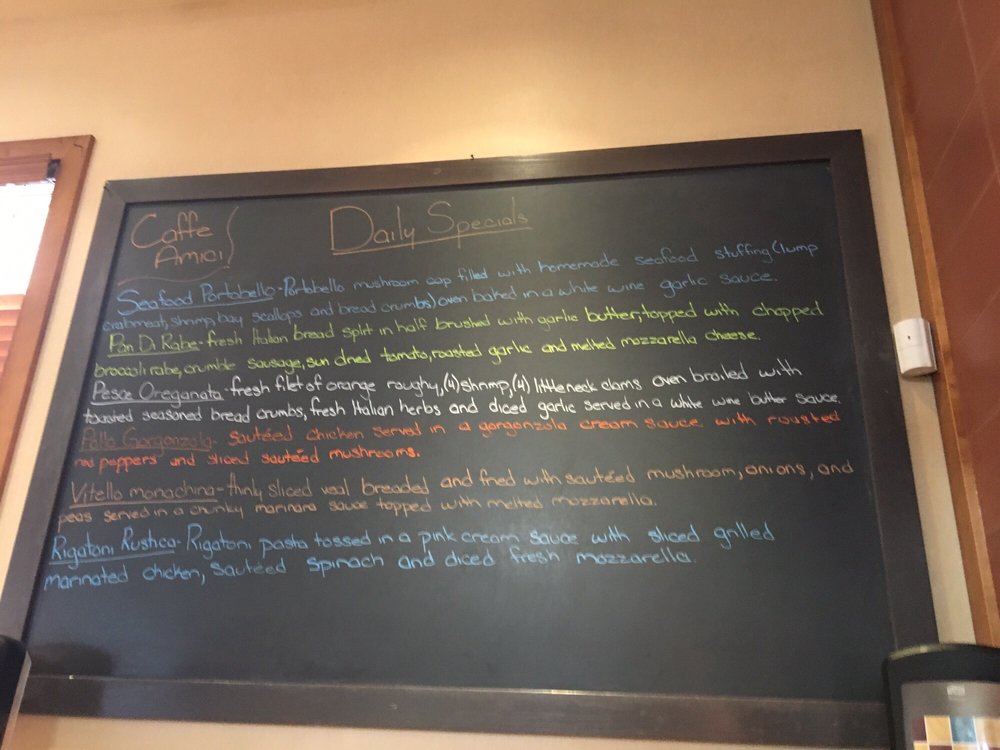 Caffe
Amici
Daily Specials
Seafood Portobello - Portobello mushroom cap filled with homemade seafood stuffing (lump
crabmeat, shrimp, bay scallops and bread crumbs) oven baked in a white wine garlic sauce.
Pan Di Rabe - fresh Italian bread split in half brushed with garlic butter, topped with chopped
broccoli rabe, crumble sausage, sun dried tomato, roasted garlic and melted mozzarella cheese.
Pesce Oreganata - fresh filet of orange roughy, (4) shrimp, (4) littleneck clams oven broiled with
toasted seasoned bread crumbs, fresh Italian herbs and diced garlic served in a white wine butter sauce.
Pollo Gorgonzola - Sautéed chicken served in a gorgonzola cream sauce with roasted
red peppers and sliced sautéed mushrooms.
Vitello monachina - thinly sliced veal breaded and fried with sautéed mushroom, onions, and
peas served in a chunky marinara sauce topped with melted mozzarella.
Rigatoni Rustica - Rigatoni pasta tossed in a pink cream sauce with sliced grilled
marinated chicken, sautéed spinach and diced fresh mozzarella.